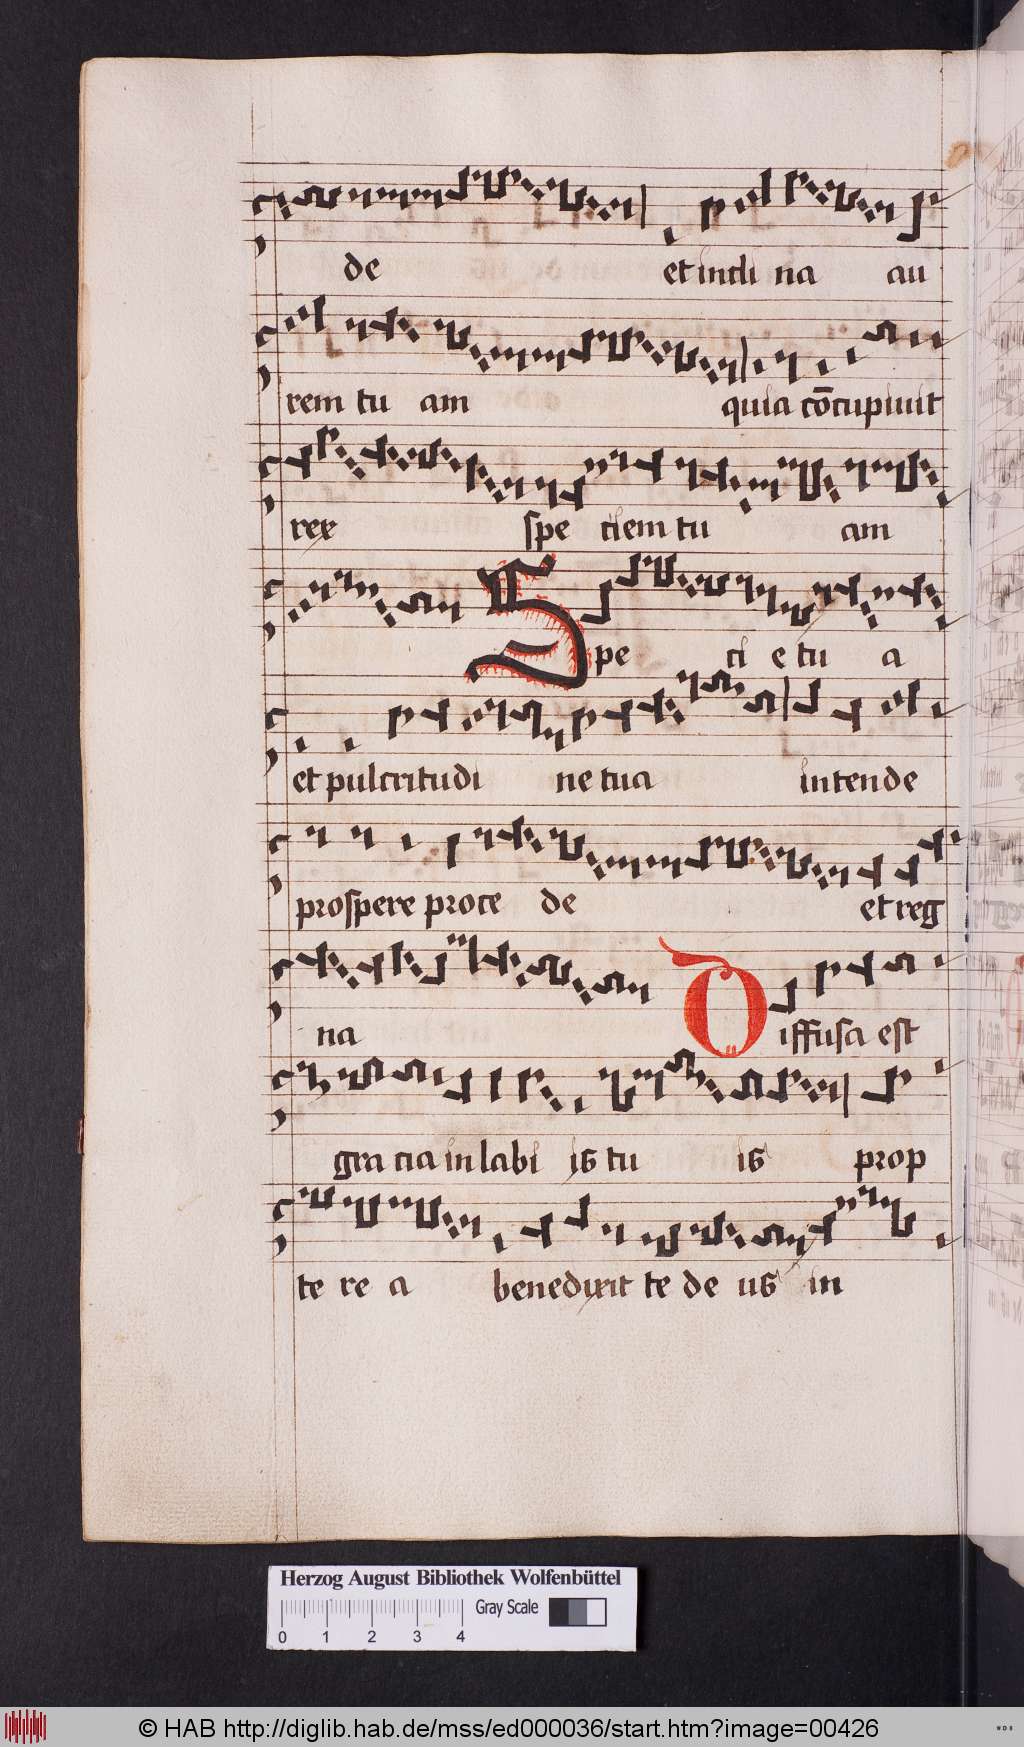 de et incli na au
rem tu am quia cōcupiuit
rex spe ciem tu am
Spe ci e tu a
et pulcritudi ne tua intende
prospere proce de et reg
na Diffusa est
gra cia in labi is tu is prop
te re a benedixit te de us in
Herzog August Bibliothek Wolfenbüttel
Gray Scale
0 1 2 3 4
© HAB http://diglib.hab.de/mss/ed000036/start.htm?image=00426